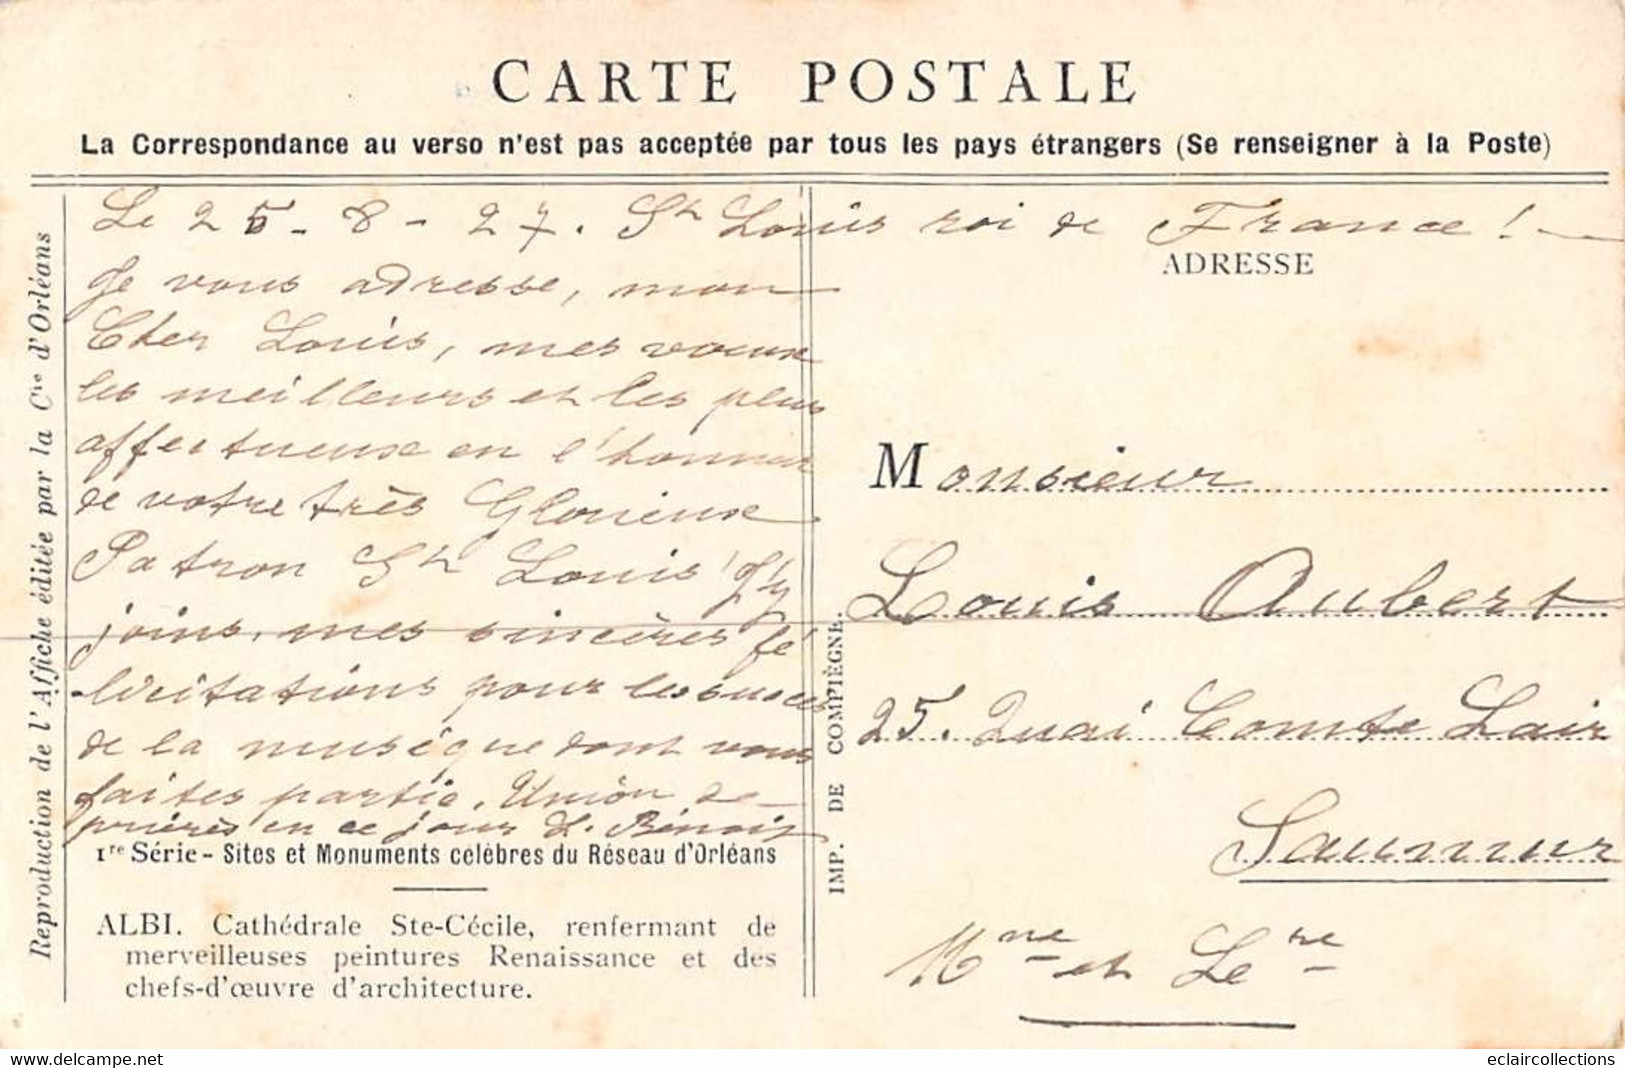 CARTE POSTALE
La Correspondance au verso n'est pas acceptée par tous les pays étrangers (Se renseigner à la Poste)
Le 25-8-27. St Louis roi de France !
Je vous adresse, mon
Cher Louis, mes voeux
les meilleurs et les plus
affectueux en l'honneur
de votre très Glorieux
Patron St Louis J'y
joins, mes sincères fé
-licitations pour les succès
de la musique dont vous
faites partie. Union de
prières en ce jour L. Benoit
1re Série - Sites et Monuments célèbres du Réseau d'Orléans
ALBI. Cathédrale Ste-Cécile, renfermant de
merveilleuses peintures Renaissance et des
chefs-d'œuvre d'architecture.
Reproduction de l'Affiche éditée par la Cie d'Orléans
IMP. DE COMPIÈGNE.
ADRESSE
Monsieur
Louis Aubert
25. Quai Comte Lair
Saumur
Mne et Lre
eclaircollections